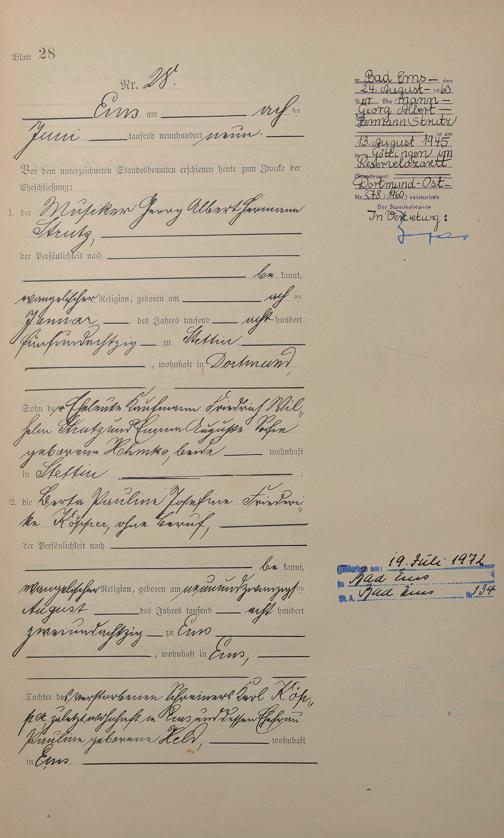 Blatt 28
Nr. 28.
Ems am achten
Juni tausend neunhundert neun.
Vor dem unterzeichneten Standesbeamten erschienen heute zum Zwecke der
Eheschließung:
1. der Musiker Georg Albert Hermann
Strutz,
der Persönlichkeit nach
be kannt,
evangelischer Religion, geboren am achten
Januar des Jahres tausend acht hundert
fünfundachtzig zu Stettin
, wohnhaft in Dortmund,
Sohn der Eheleute Kaufmann Friedrich Wil-
helm Strutz und Emma Auguste Sofie
geborene, beide wohnhaft
in Stettin
2. die Berta Pauline Josefine Friederi-
ke Köpper, ohne Beruf,
der Persönlichkeit nach
be kannt,
evangelischer Religion, geboren am neunundzwanzigsten
August des Jahres tausend acht hundert
zweiundachtzig zu Ems
, wohnhaft in Ems,
Tochter des verstorbenen Schreiners Karl Köp-
per, zuletzt wohnhaft in Ems, und dessen Ehefrau
Pauline geborene Held, wohnhaft
in Ems.
Bad Ems den
24. August 1960
Der Ehemann
Georg Albert
Hermann Strutz
ist am
13. August 1945
in Göttingen im
Reservelazarett
(Standesamt
Dortmund-Ost
Nr. 378/1960) verstorben.
Der Standesbeamte
In Vertretung:
Gestorben am: 19. Juli 1972
in Bad Ems
St. A. Bad Ems Nr. 134